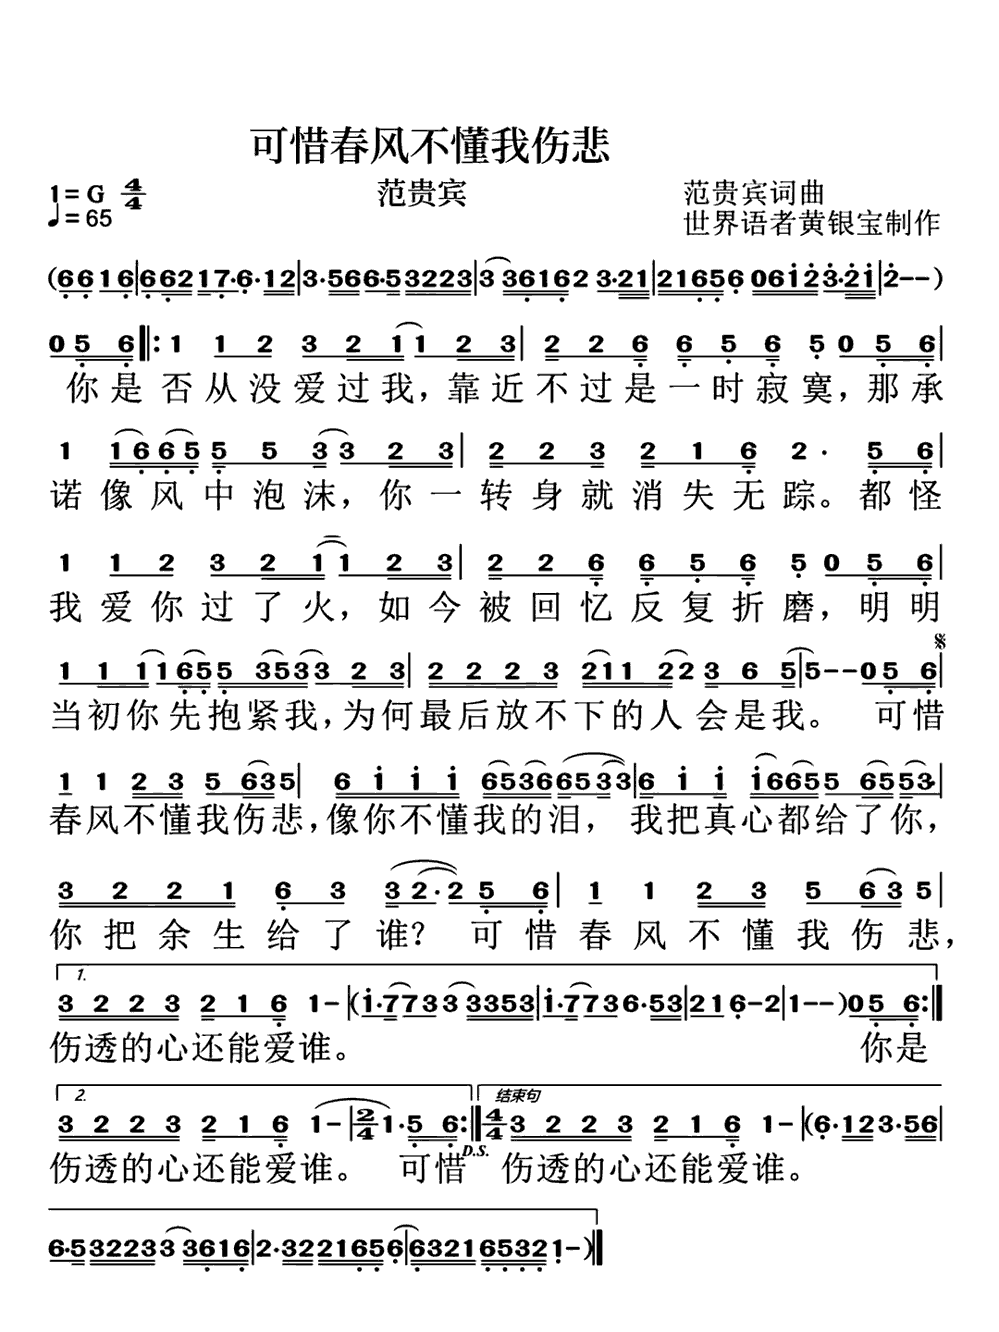 可惜春风不懂我伤悲
1=G 4/4 范贵宾 范贵宾词曲
♩=65 世界语者黄银宝制作
(6616|66217·6·12|3·566·53223|3361612 3·21|21656 06123·21|2--)
056‖:1 1 2 3 2 1 1 2 3|2 2 6 6 5 6 5 0 5 6|
你是否从没爱过我，靠近不过是一时寂寞，那承
1 1 6 6 5 5 5 3 3 2 3|2 2 3 2 1 6 2· 5 6|
诺像风中泡沫，你一转身就消失无踪。都怪
1 1 2 3 2 1 1 2 3|2 2 6 6 5 6 5 0 5 6|
我爱你过了火，如今被回忆反复折磨，明明
1 1 1 1 6 5 5 3 5 3 3 2 3|2 2 2 3 2 1 1 2 2 3 6 5|5--0 5 6|
当初你先抱紧我，为何最后放不下的人会是我。 可惜
1 1 2 3 5 6 3 5|6 1 1 1 6 5 3 6 6 5 3 3|6 1 1 1 6 6 5 5 6 5 5 3·|
春风不懂我伤悲，像你不懂我的泪， 我把真心都给了你，
3 2 2 1 6 3 3 2·2 5 6|1 1 2 3 5 6 3 5|
你把余生给了谁？ 可惜春风不懂我伤悲，
1.
3 2 2 3 2 1 6 1-|(1·7 7 3 3 3 3 5 3|1·7 7 3 6·5 3|2 1 6-2|1--)0 5 6:‖
伤透的心还能爱谁。 你是
2. 结束句
3 2 2 3 2 1 6 1-|2/4 1·5 6:‖4/4 3 2 2 3 2 1 6 1-|(6·1 2 3·5 6|
D.S.
伤透的心还能爱谁。 可惜 伤透的心还能爱谁。
6·5 3 2 2 3 3 3 6 1 6|2·3 2 2 1 6 5 6|6 3 2 1 6 5 3 2 1-)‖